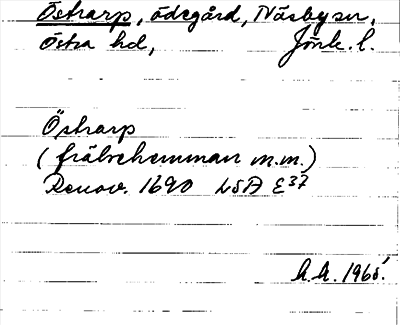 Östrarp, ödegård, Näsby sn,
Östra hd, Jönk. l.
Östrarp
(frälsehemman m.m.)
Renov. 1690 LSA E37
A.A. 1965.